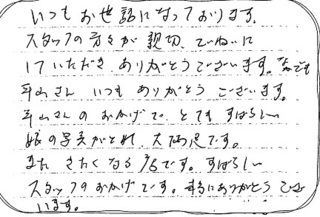 いつもお世話になっております。
スタッフの方々が親切、ていねいに
して いただき ありがとうございます。
さん いつも ありがとう ございます。
さんの おかげで、とても すばらしい
娘の写真がとれ、大満足です。
また きたくなる です。すばらしい
スタッフの おかげです。本当にありがとう ござ
います。